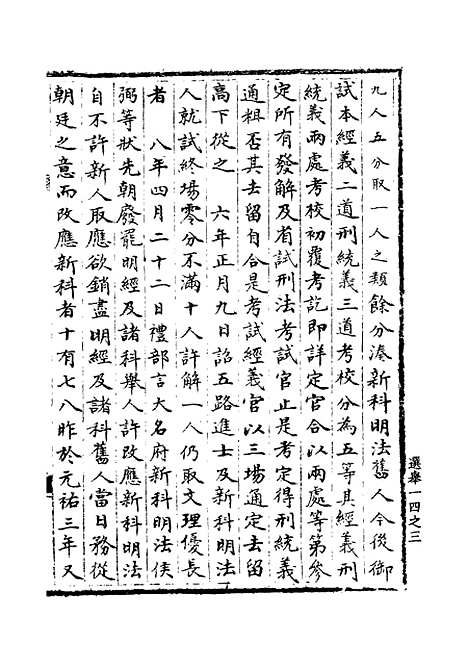 九人五分取一人之類餘分湊新科明法舊人今後御
試本經義二道刑統義三道考校分為五等其經義刑
統義兩處考校初覆考訖即詳定官合以兩處等第參
定所有發解及省試刑法考試官止是考定得刑統義
通粗否其去留自合是考試經義官以三場通定去留
高下從之　六年正月九日詔五路進士及新科明法
人就試終場零分不滿十人許解一人仍取文理優長
者　八年四月二十二日禮部言大名府新科明法侯
弼等狀先朝廢罷明經及諸科舉人許改應新科明法
自不許新人取應欲銷盡明經及諸科舊人當日務從
朝廷之意而改應新科者十有七八昨於元祐三年又
選舉一四之三